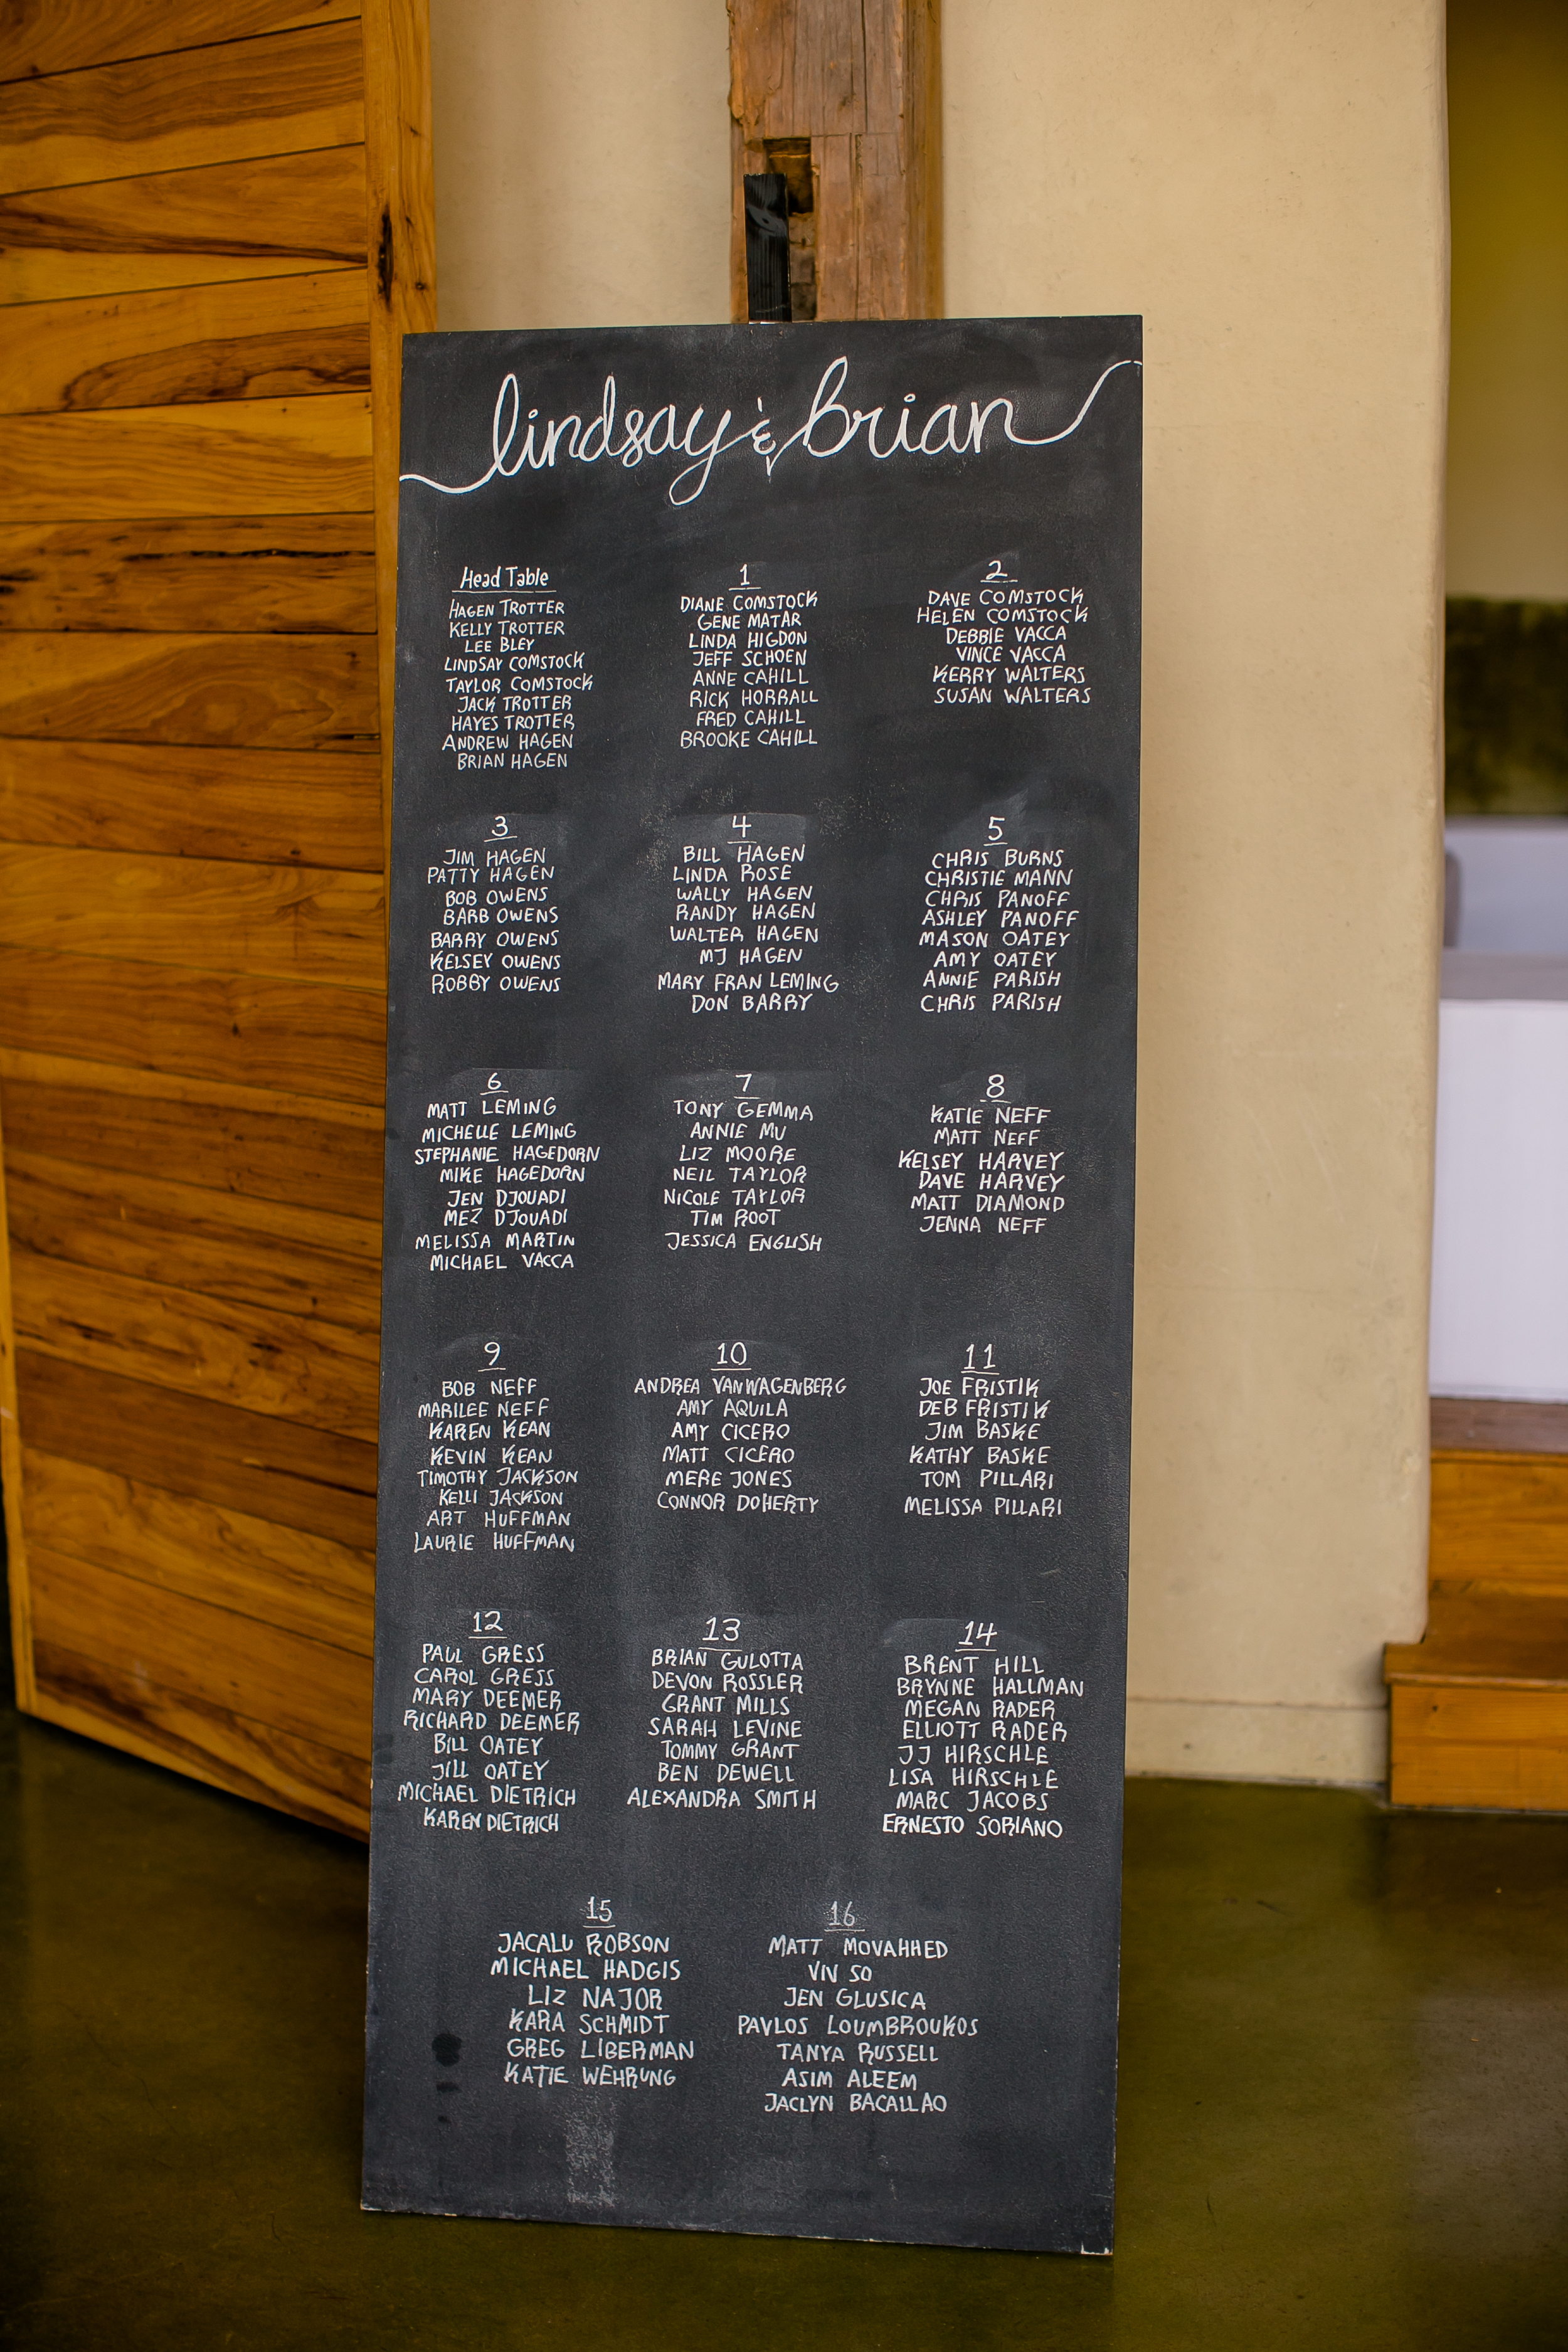 lindsay & brian
Head Table
HAGEN TROTTER
KELLY TROTTER
LEE BLEY
LINDSAY COMSTOCK
TAYLOR COMSTOCK
JACK TROTTER
HAYES TROTTER
ANDREW HAGEN
BRIAN HAGEN
1
DIANE COMSTOCK
GENE MATAR
LINDA HIGDON
JEFF SCHOEN
ANNE CAHILL
RICK HORRALL
FRED CAHILL
BROOKE CAHILL
2
DAVE COMSTOCK
HELEN COMSTOCK
DEBBIE VACCA
VINCE VACCA
KERRY WALTERS
SUSAN WALTERS
3
JIM HAGEN
PATTY HAGEN
BOB OWENS
BARB OWENS
BARRY OWENS
KELSEY OWENS
ROBBY OWENS
4
BILL HAGEN
LINDA ROSE
WALLY HAGEN
RANDY HAGEN
WALTER HAGEN
MJ HAGEN
MARY FRAN LEMING
DON BARRY
5
CHRIS BURNS
CHRISTIE MANN
CHRIS PANOFF
ASHLEY PANOFF
MASON OATEY
AMY OATEY
ANNIE PARISH
CHRIS PARISH
6
MATT LEMING
MICHELLE LEMING
STEPHANIE HAGEDORN
MIKE HAGEDORN
JEN DJOUADI
MEZ DJOUADI
MELISSA MARTIN
MICHAEL VACCA
7
TONY GEMMA
ANNIE MU
LIZ MOORE
NEIL TAYLOR
NICOLE TAYLOR
TIM ROOT
JESSICA ENGLISH
8
KATIE NEFF
MATT NEFF
KELSEY HARVEY
DAVE HARVEY
MATT DIAMOND
JENNA NEFF
9
BOB NEFF
MARILEE NEFF
KAREN KEAN
KEVIN KEAN
TIMOTHY JACKSON
KELLI JACKSON
ART HUFFMAN
LAURIE HUFFMAN
10
ANDREA VANWAGENBERG
AMY AQUILA
AMY CICERO
MATT CICERO
MERE JONES
CONNOR DOHERTY
11
JOE FRISTIK
DEB FRISTIK
JIM BASKE
KATHY BASKE
TOM PILLARI
MELISSA PILLARI
12
PAUL GRESS
CAROL GRESS
MARY DEEMER
RICHARD DEEMER
BILL OATEY
JILL OATEY
MICHAEL DIETRICH
KAREN DIETRICH
13
BRIAN GULOTTA
DEVON ROSSLER
GRANT MILLS
SARAH LEVINE
TOMMY GRANT
BEN DEWELL
ALEXANDRA SMITH
14
BRENT HILL
BRYNNE HALLMAN
MEGAN RADER
ELLIOTT RADER
JJ HIRSCHLE
LISA HIRSCHLE
MARC JACOBS
ERNESTO SORIANO
15
JACALU ROBSON
MICHAEL HADGIS
LIZ NAJOR
KARA SCHMIDT
GREG LIBERMAN
KATIE WEHRUNG
16
MATT MOVAHHED
VIV SO
JEN GLUSICA
PAVLOS LOUMBROUKOS
TANYA RUSSELL
ASIM ALEEM
JACLYN BACALLAO